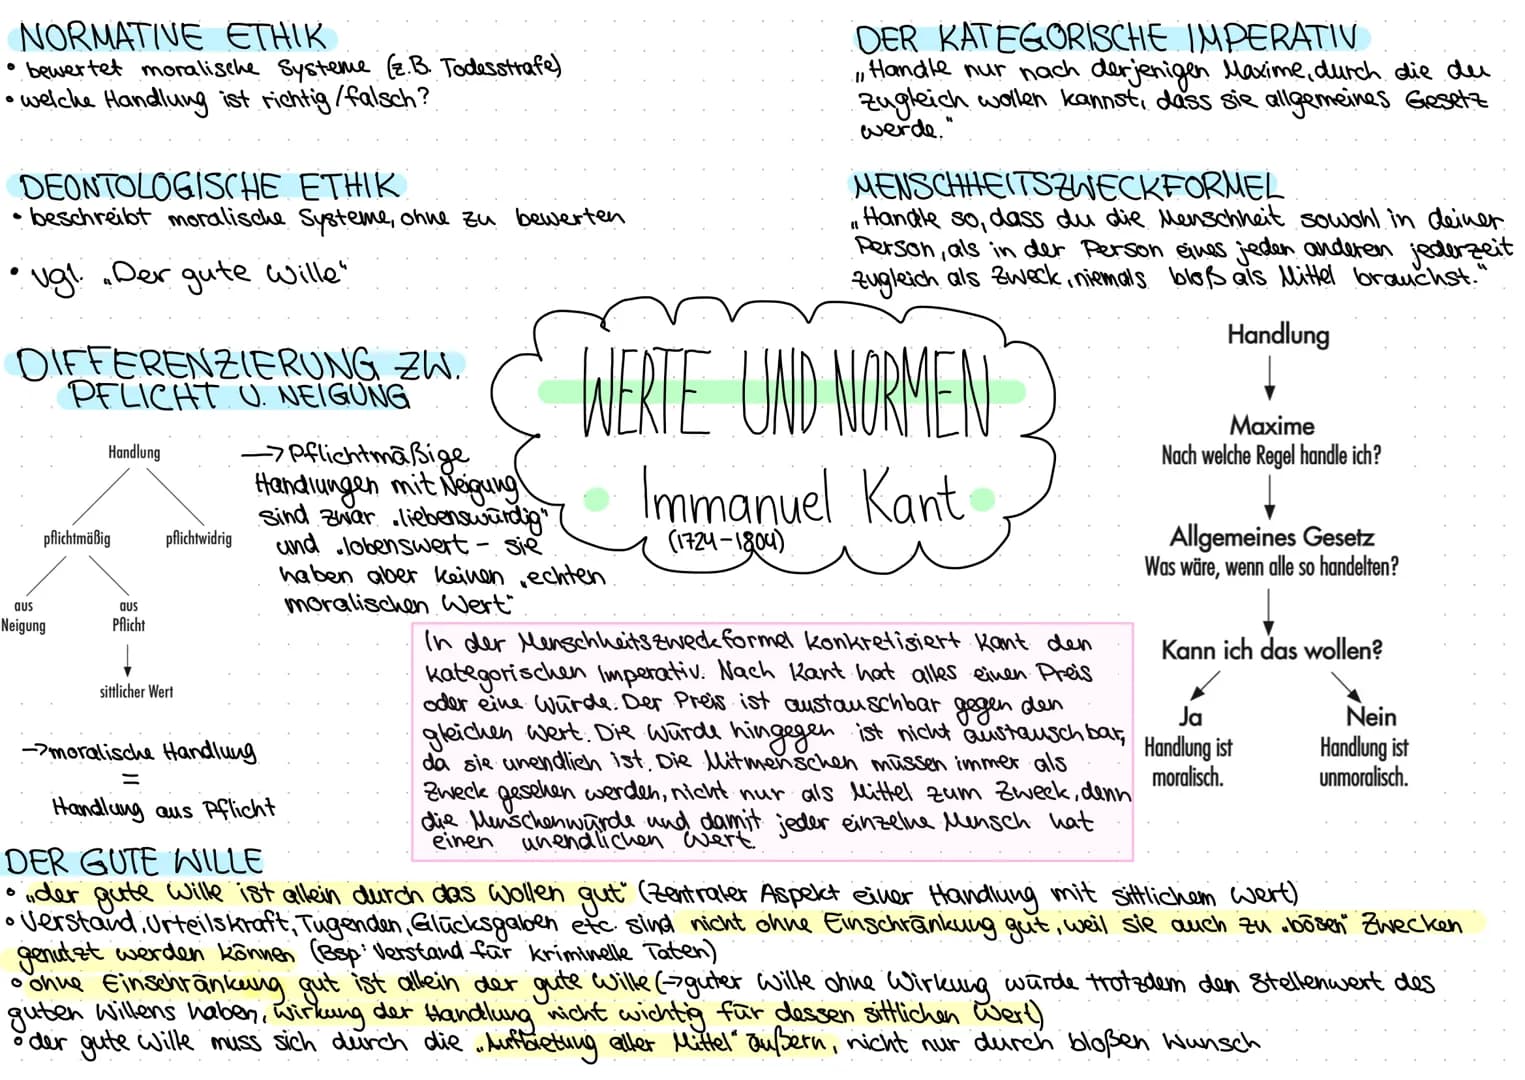 NORMATIVE ETHIK
• bewertet moralische Systeme (z.B. Todesstrafe)
• welche Handlung ist richtig/falsch?
DEONTOLOGISCHE ETHIK
• beschreibt moralische Systeme, ohne zu bewerten
• vgl. „Der gute Wille"
DIFFERENZIERUNG ZW.
PFLICHT U. NEIGUNG
Handlung
pflichtmäßig
pflichtwidrig
aus
Neigung
aus
Pflicht
sittlicher Wert
→ Pflichtmäßige
Handlungen mit Neigung
sind zwar „liebenswürdig"
und „lobenswert - sie
haben aber keinen „echten
moralischen Wert"
→ moralische Handlung
=
Handlung aus Pflicht
WERTE UND NORMEN
Immanuel Kant
(1724-1804)
DER KATEGORISCHE IMPERATIV
„Handle nur nach derjenigen Maxime, durch die du
zugleich wollen kannst, dass sie allgemeines Gesetz
werde."
MENSCHHEITSZWECKFORMEL
„Handle so, dass du die Menschheit sowohl in deiner
Person, als in der Person eines jeden anderen jederzeit
zugleich als Zweck, niemals bloß als Mittel brauchst."
Handlung
Maxime
Nach welche Regel handle ich?
Allgemeines Gesetz
Was wäre, wenn alle so handelten?
Kann ich das wollen?
Ja
Handlung ist
moralisch.
Nein
Handlung ist
unmoralisch.
In der Menschheitszweckformel konkretisiert Kant den
kategorischen Imperativ. Nach Kant hat alles einen Preis
oder eine Würde. Der Preis ist austauschbar gegen den
gleichen Wert. Die Würde hingegen ist nicht austauschbar,
da sie unendlich ist. Die Mitmenschen müssen immer als
Zweck gesehen werden, nicht nur als Mittel zum Zweck, denn
die Menschenwürde und damit jeder einzelne Mensch hat
einen unendlichen Wert.
DER GUTE WILLE
• „der gute Wille ist allein durch das Wollen gut" (zentraler Aspekt einer Handlung mit sittlichem Wert)
• Verstand, Urteilskraft, Tugenden, Glücksgaben etc. sind nicht ohne Einschränkung gut, weil sie auch zu „bösen" Zwecken
genutzt werden können (Bsp: Verstand für kriminelle Taten)
• ohne Einschränkung gut ist allein der gute Wille (→ guter Wille ohne Wirkung würde trotzdem den Stellenwert des
guten Willens haben, Wirkung der Handlung nicht wichtig für dessen sittlichen Wert)
• der gute Wille muss sich durch die „Aufbietung aller Mittel" äußern, nicht nur durch bloßen Wunsch